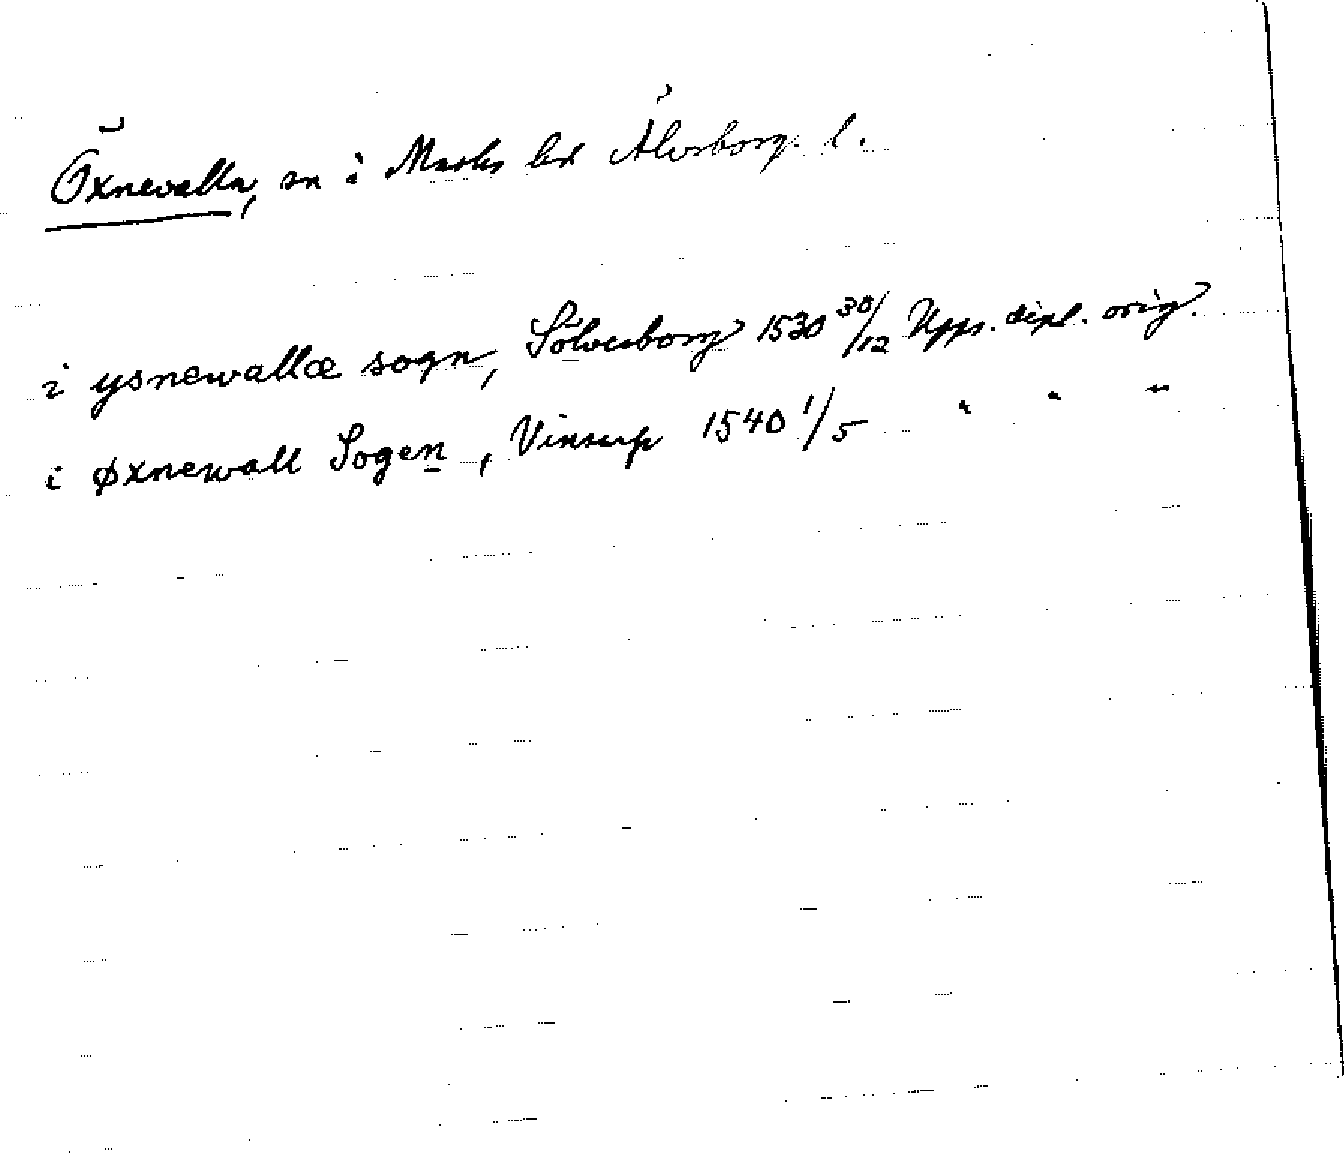 Öxnevalla, sn i Marks hd Älvsborgs l.
i ysnewallæ sogn, Sölvesborg 1530 30/12 Upps. dipl. orig.
i øxnewall Sogen, Vinsarp 1540 1/5 " " "